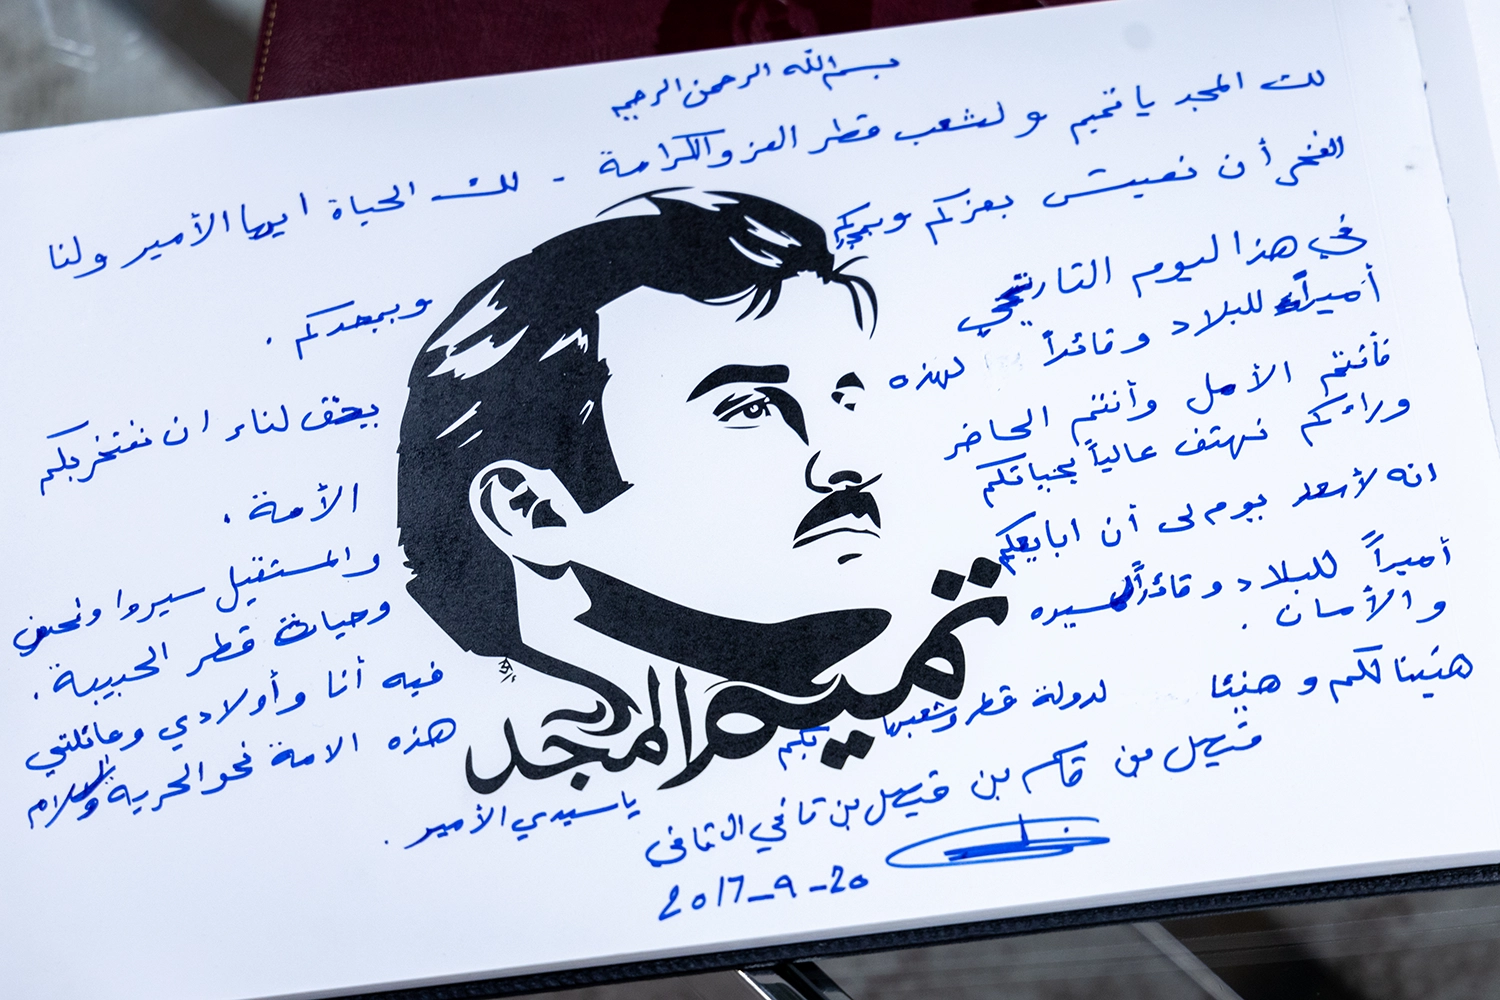 بسم الله الرحمن الرحيم
لك المجد يا تميم ولشعب قطر العز والكرامة - لك الحياة ايها الأمير ولنا
الفخر أن نعيش بعزكم وبمجدكم .
في هذا اليوم التاريخي يحق لنا ان نفتخر بكم
أميراً للبلاد وقائداً لهذه الأمة .
فأنتم الأمل وأنتم الحاضر والمستقبل سيروا ونحن
وراءكم نهتف عالياً بحياتكم وحياة قطر الحبيبة .
انه لأسعد يوم لي أن ابايعكم فيه أنا وأولادي وعائلتي
أميراً للبلاد وقائداً لمسيرة هذه الامة نحو الحرية والسلام
والأمان .
هنيئا لكم و هنيئا لدولة قطر وشعبها بكم يا سيدي الأمير .
تميم المجد
بن قاسم بن بن ثاني الثاني
2017-9-20